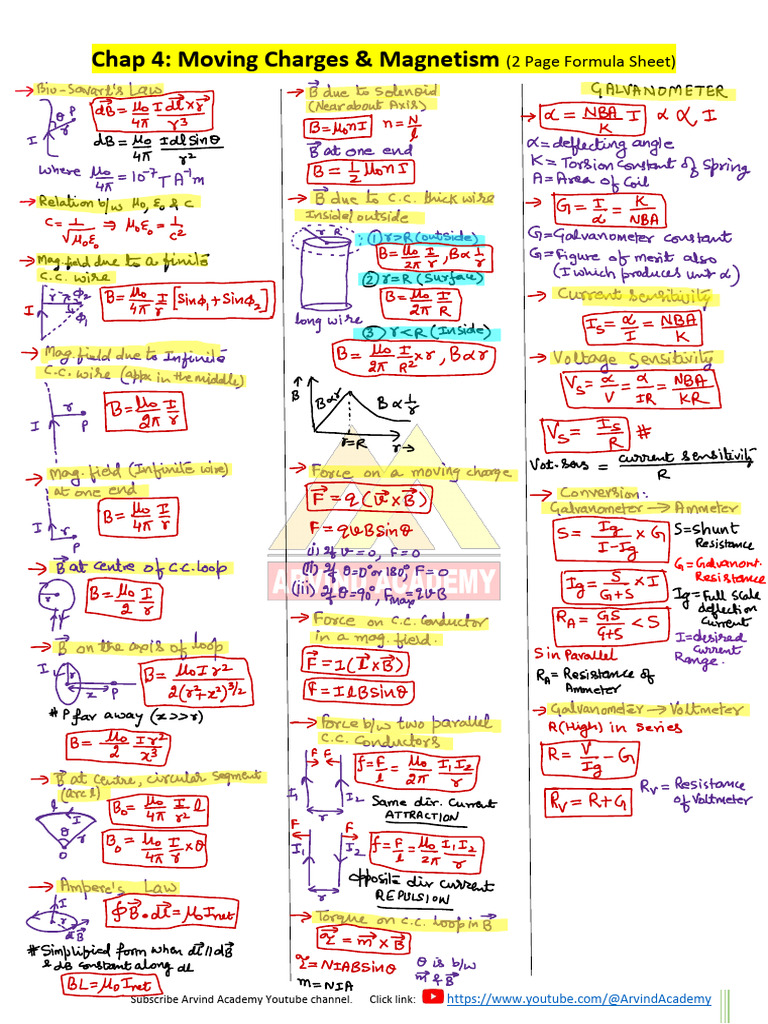 Chap 4: Moving Charges & Magnetism (2 Page Formula Sheet)
→ Bio-Savart's Law
I θ P r
d𝐁⃗ = μ₀/4π I d𝐥⃗ × 𝐫⃗ / r³
dB = μ₀/4π Idl Sinθ / r²
where μ₀/4π = 10⁻⁷ T A⁻¹ m
→ Relation b/w μ₀, ε₀ & c
c = 1/√μ₀ε₀ ⇒ μ₀ε₀ = 1/c²
→ Mag. field due to a finite
c.c. wire
I r φ₂ φ₁
B = μ₀/4π I/r [Sinφ₁ + Sinφ₂]
→ Mag. field due to Infinite
c.c. wire (appx in the middle)
I r P
B = μ₀/2π I/r
→ Mag. field (Infinite wire)
at one end
I r P
B = μ₀/4π I/r
→ B⃗ at centre of c.c. loop
r I
B = μ₀/2 I/r
→ B⃗ on the axis of loop
I r x P
B = μ₀ I r² / 2(r²+x²)^3/2
# P far away (x>>r)
B = μ₀/2 Ir²/x³
→ B⃗ at centre, circular segment
(arc l)
l I θ r O
B₀ = μ₀/4π I/r² l
B₀ = μ₀/4π I/r × θ
→ Ampere's Law
I r dB⃗
∮B⃗ • dl⃗ = μ₀ Inet
# Simplified form when dl⃗ || dB⃗
& dB constant along dl
BL = μ₀ Inet
→ B⃗ due to Solenoid
(Near about Axis)
B = μ₀nI n = N/l
B⃗ at one end
B = 1/2 μ₀nI
→ B⃗ due to c.c. thick wire
Inside/outside
r R
long wire
① r>R (outside)
B = μ₀/2π I/r, B∝1/r
② r=R (Surface)
B = μ₀/2π I/R
③ r<R (Inside)
B = μ₀/2π I/R² × r, B∝r
B B∝r B∝1/r
r=R r→
→ Force on a moving charge
F⃗ = q(v⃗ × B⃗)
F = qvBsinθ
(i) If v=0, F=0
(ii) If θ=0° or 180° F=0
(iii) If θ=90°, Fmax = qvB
ARVIND ACADEMY
→ Force on c.c. Conductor
in a mag. field.
F⃗ = I(l⃗ × B⃗)
F = IlBsinθ
→ Force b/w two parallel
c.c. Conductors
F F I₁ I₂ r
f = F/l = μ₀/2π I₁I₂/r
Same dir. Current
ATTRACTION
F F I₁ I₂ r
f = F/l = μ₀/2π I₁I₂/r
opposite dir current
REPULSION
→ Torque on c.c. loop in B⃗
τ⃗ = m⃗ × B⃗
τ = NIABsinθ
m = NIA
θ is b/w
m⃗ & B⃗
GALVANOMETER
→ α = NBA/K I α ∝ I
α = deflecting angle
K = Torsion constant of Spring
A = Area of coil
→ G = I/α = K/NBA
G = Galvanometer constant
G = Figure of merit also
(I which produces unit α)
→ Current Sensitivity
Is = α/I = NBA/K
→ Voltage Sensitivity
Vs = α/V = α/IR = NBA/KR
Vs = Is/R #
Vol. sens = current sensitivity/R
→ Conversion:
Galvanometer → Ammeter
S = Ig/I-Ig × G
S = Shunt
Resistance
G = Galvanont.
Resistance
Ig = S/G+S × I
Ig = Full scale
deflection
current
RA = GS/G+S < S
I = desired
current
Range.
S in Parallel
RA = Resistance of
Ammeter
→ Galvanometer → Voltmeter
R(High) in series
R = V/Ig − G
RV = R + G
RV = Resistance
of Voltmeter
Subscribe Arvind Academy Youtube channel. Click link: https://www.youtube.com/@ArvindAcademy